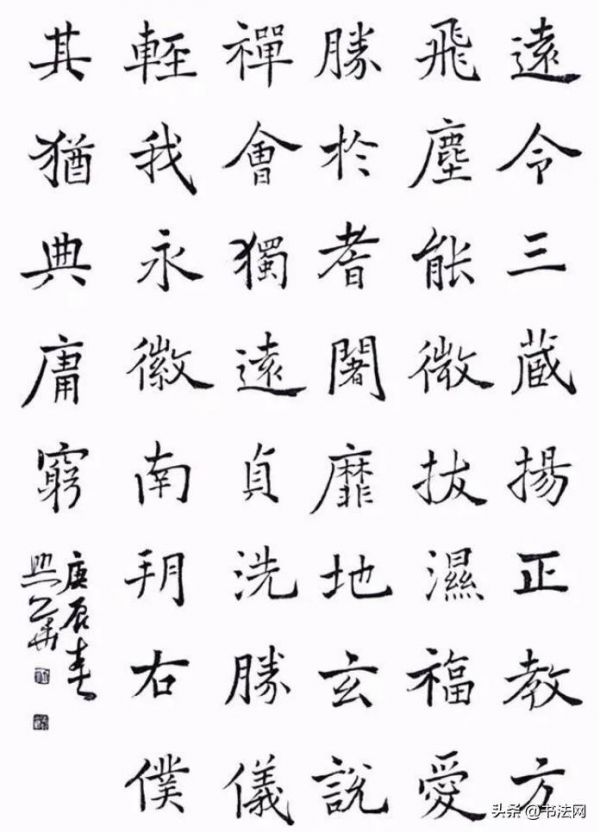 遠令三蔵揚正教方
飛塵能微拔濕福愛
勝於耆闍靡地玄說
禪會獨遠貞洗勝儀
輕我永徽南朔右僕
其猶典庸窮
庚辰春
头条 @书法网